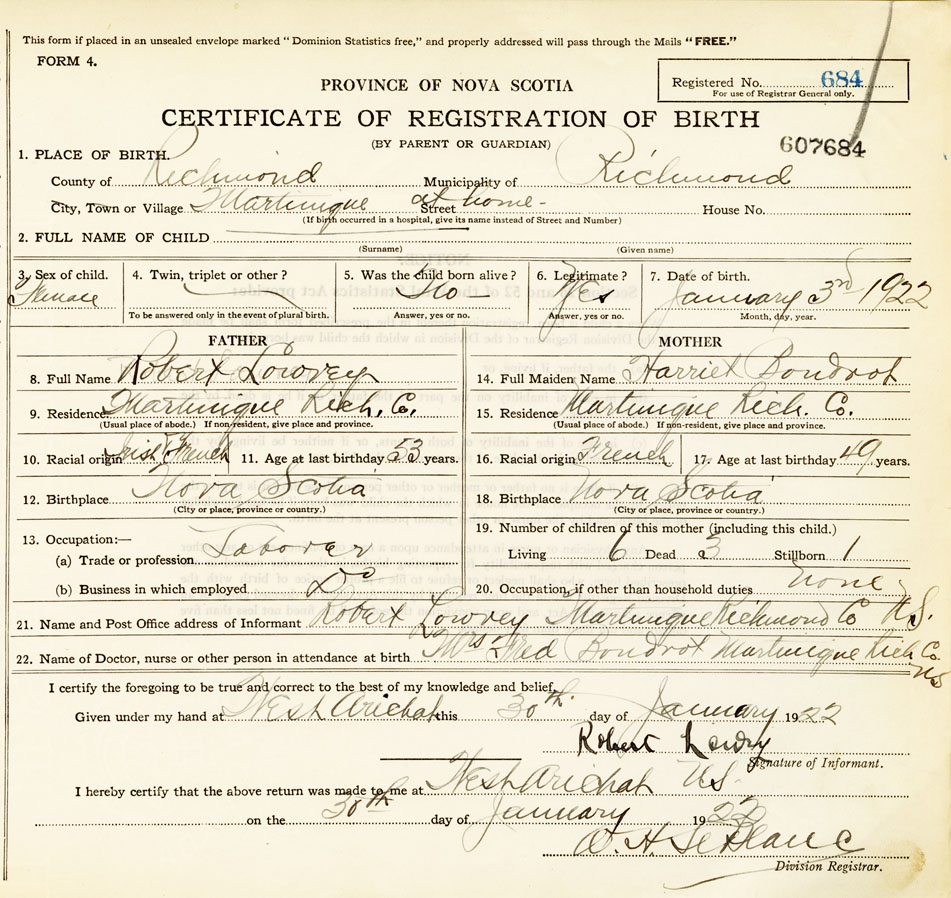 This form if placed in an unsealed envelope marked "Dominion Statistics free," and properly addressed will pass through the Mails "FREE."
FORM 4.
Registered No. 684
For use of Registrar General only.
PROVINCE OF NOVA SCOTIA
CERTIFICATE OF REGISTRATION OF BIRTH
(BY PARENT OR GUARDIAN)
607684
1. PLACE OF BIRTH.
County of Richmond Municipality of Richmond
City, Town or Village Martinique Street at home - House No.
(If birth occurred in a hospital, give its name instead of Street and Number)
2. FULL NAME OF CHILD
(Surname) (Given name)
3. Sex of child. 4. Twin, triplet or other? 5. Was the child born alive? 6. Legitimate? 7. Date of birth.
Female No - Yes January 3rd 1922
To be answered only in the event of plural birth. Answer, yes or no. Answer, yes or no. Month, day, year.
FATHER MOTHER
8. Full Name Robert Lowrey 14. Full Maiden Name Harriet Boudrot
9. Residence Martinique Rich. Co. 15. Residence Martinique Rich. Co.
(Usual place of abode.) If non-resident, give place and province. (Usual place of abode.) If non-resident, give place and province.
10. Racial origin Irish French 11. Age at last birthday 53 years. 16. Racial origin French 17. Age at last birthday 49 years.
12. Birthplace Nova Scotia 18. Birthplace Nova Scotia
(City or place, province or country.) (City or place, province or country.)
13. Occupation:— 19. Number of children of this mother (including this child.)
(a) Trade or profession Laborer Living 6 Dead 3 Stillborn 1
(b) Business in which employed Do 20. Occupation, if other than household duties None
21. Name and Post Office address of Informant Robert Lowrey Martinique Richmond Co N.S.
22. Name of Doctor, nurse or other person in attendance at birth Mrs Fred Boudrot Martinique Rich Co. NS
I certify the foregoing to be true and correct to the best of my knowledge and belief.
Given under my hand at West Arichat this 30th day of January 1922
Robert Lowry
Signature of Informant.
I hereby certify that the above return was made to me at West Arichat NS.
on the 30th day of January 1922
Division Registrar.